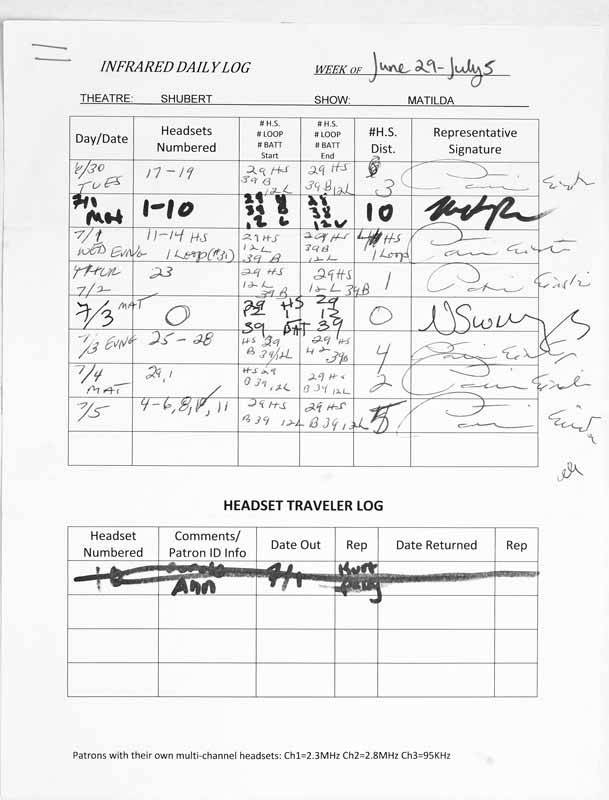 INFRARED DAILY LOG WEEK OF June 29-July 5
THEATRE: SHUBERT SHOW: MATILDA
Day/Date Headsets Numbered # H.S. # LOOP # BATT Start # H.S. # LOOP # BATT End #H.S. Dist. Representative Signature
6/30 TUES 17-19 29 HS 39 B 12 L 29 HS 39 B 12 L 3
7/1 MAT 1-10 12 L 10
7/1 WED EVNG 11-14 HS 1 Loop (#31) 29 HS 12 L 39 B 29 HS 39 B 12 L 4 HS 1 Loop
7/2 23 29 HS 12 L 39 B 29 HS 12 L 39 B 1
7/3 MAT 0 29 HS 12 L 39 BATT 29 12 39 0
7/3 EVNG 25-28 HS 29 B 39/12L 29 HS 39B 4
7/4 MAT 29, 1 HS 29 B 39, 12L 29 HS B 39, 12L 2
7/5 4-6, 8, 11 29 HS B 39 12L 29 HS B 39, 12L 5
HEADSET TRAVELER LOG
Headset Numbered Comments/ Patron ID Info Date Out Rep Date Returned Rep
Ann 7/1 Kurt
Patrons with their own multi-channel headsets: Ch1=2.3MHz Ch2=2.8MHz Ch3=95KHz